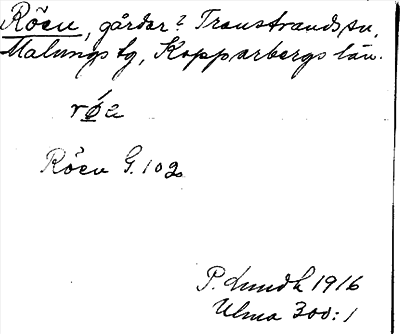 Röen, gårdar? Transtrands sn,
Malungs tg, Kopparbergs län.
röa
Röen G. 102
P. Lundh 1916
Ulma 300:1